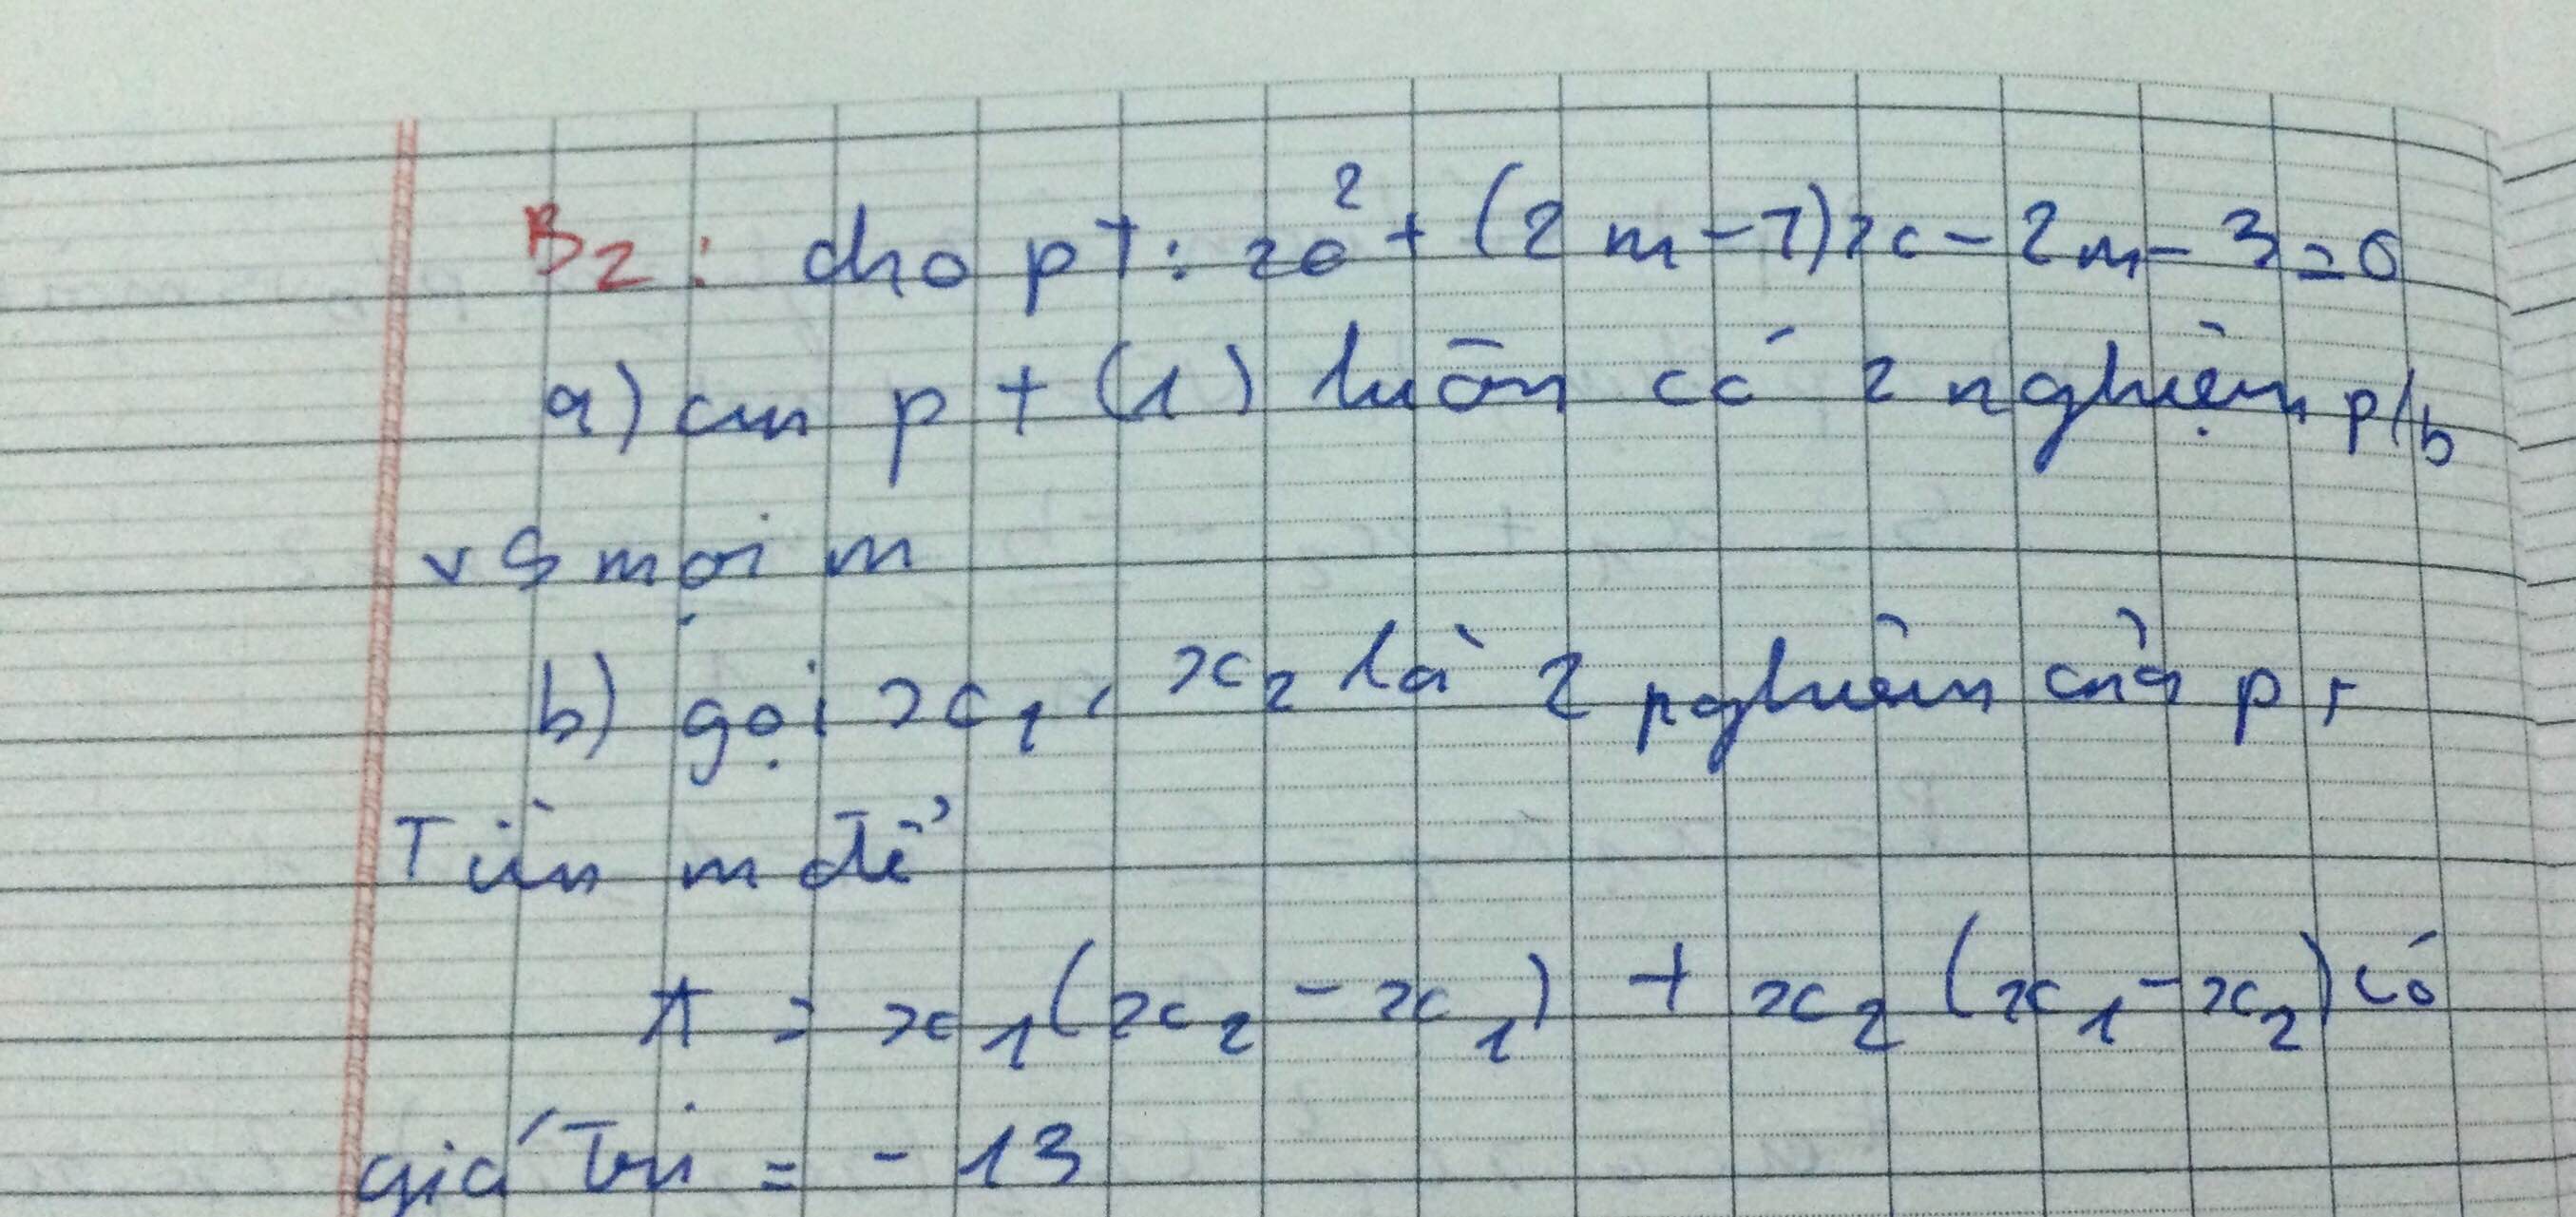 B2: cho pT: x² + (2m-7)x - 2m - 3 = 0
a) cm pt (1) luôn có 2 nghiệm p/b
vs mọi m
b) gọi x₁, x₂ là 2 nghiệm của pt
Tìm m để
A = x₁(x₂ - x₁) + x₂(x₁ - x₂) có
giá trị = - 13